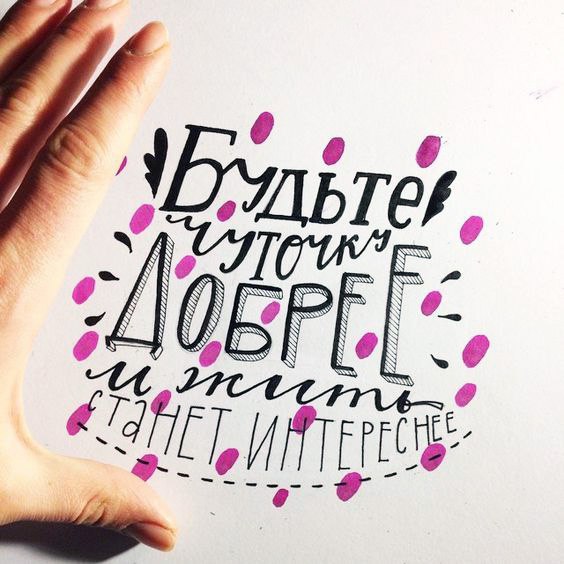 Будьте
чуточку
ДОБРЕЕ
и жить
СТАНЕТ ИНТЕРЕСНЕЕ